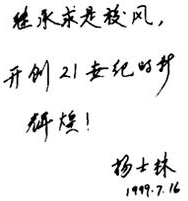 继承求是校风，
开创21世纪的新
辉煌！
杨士林
1999.7.16